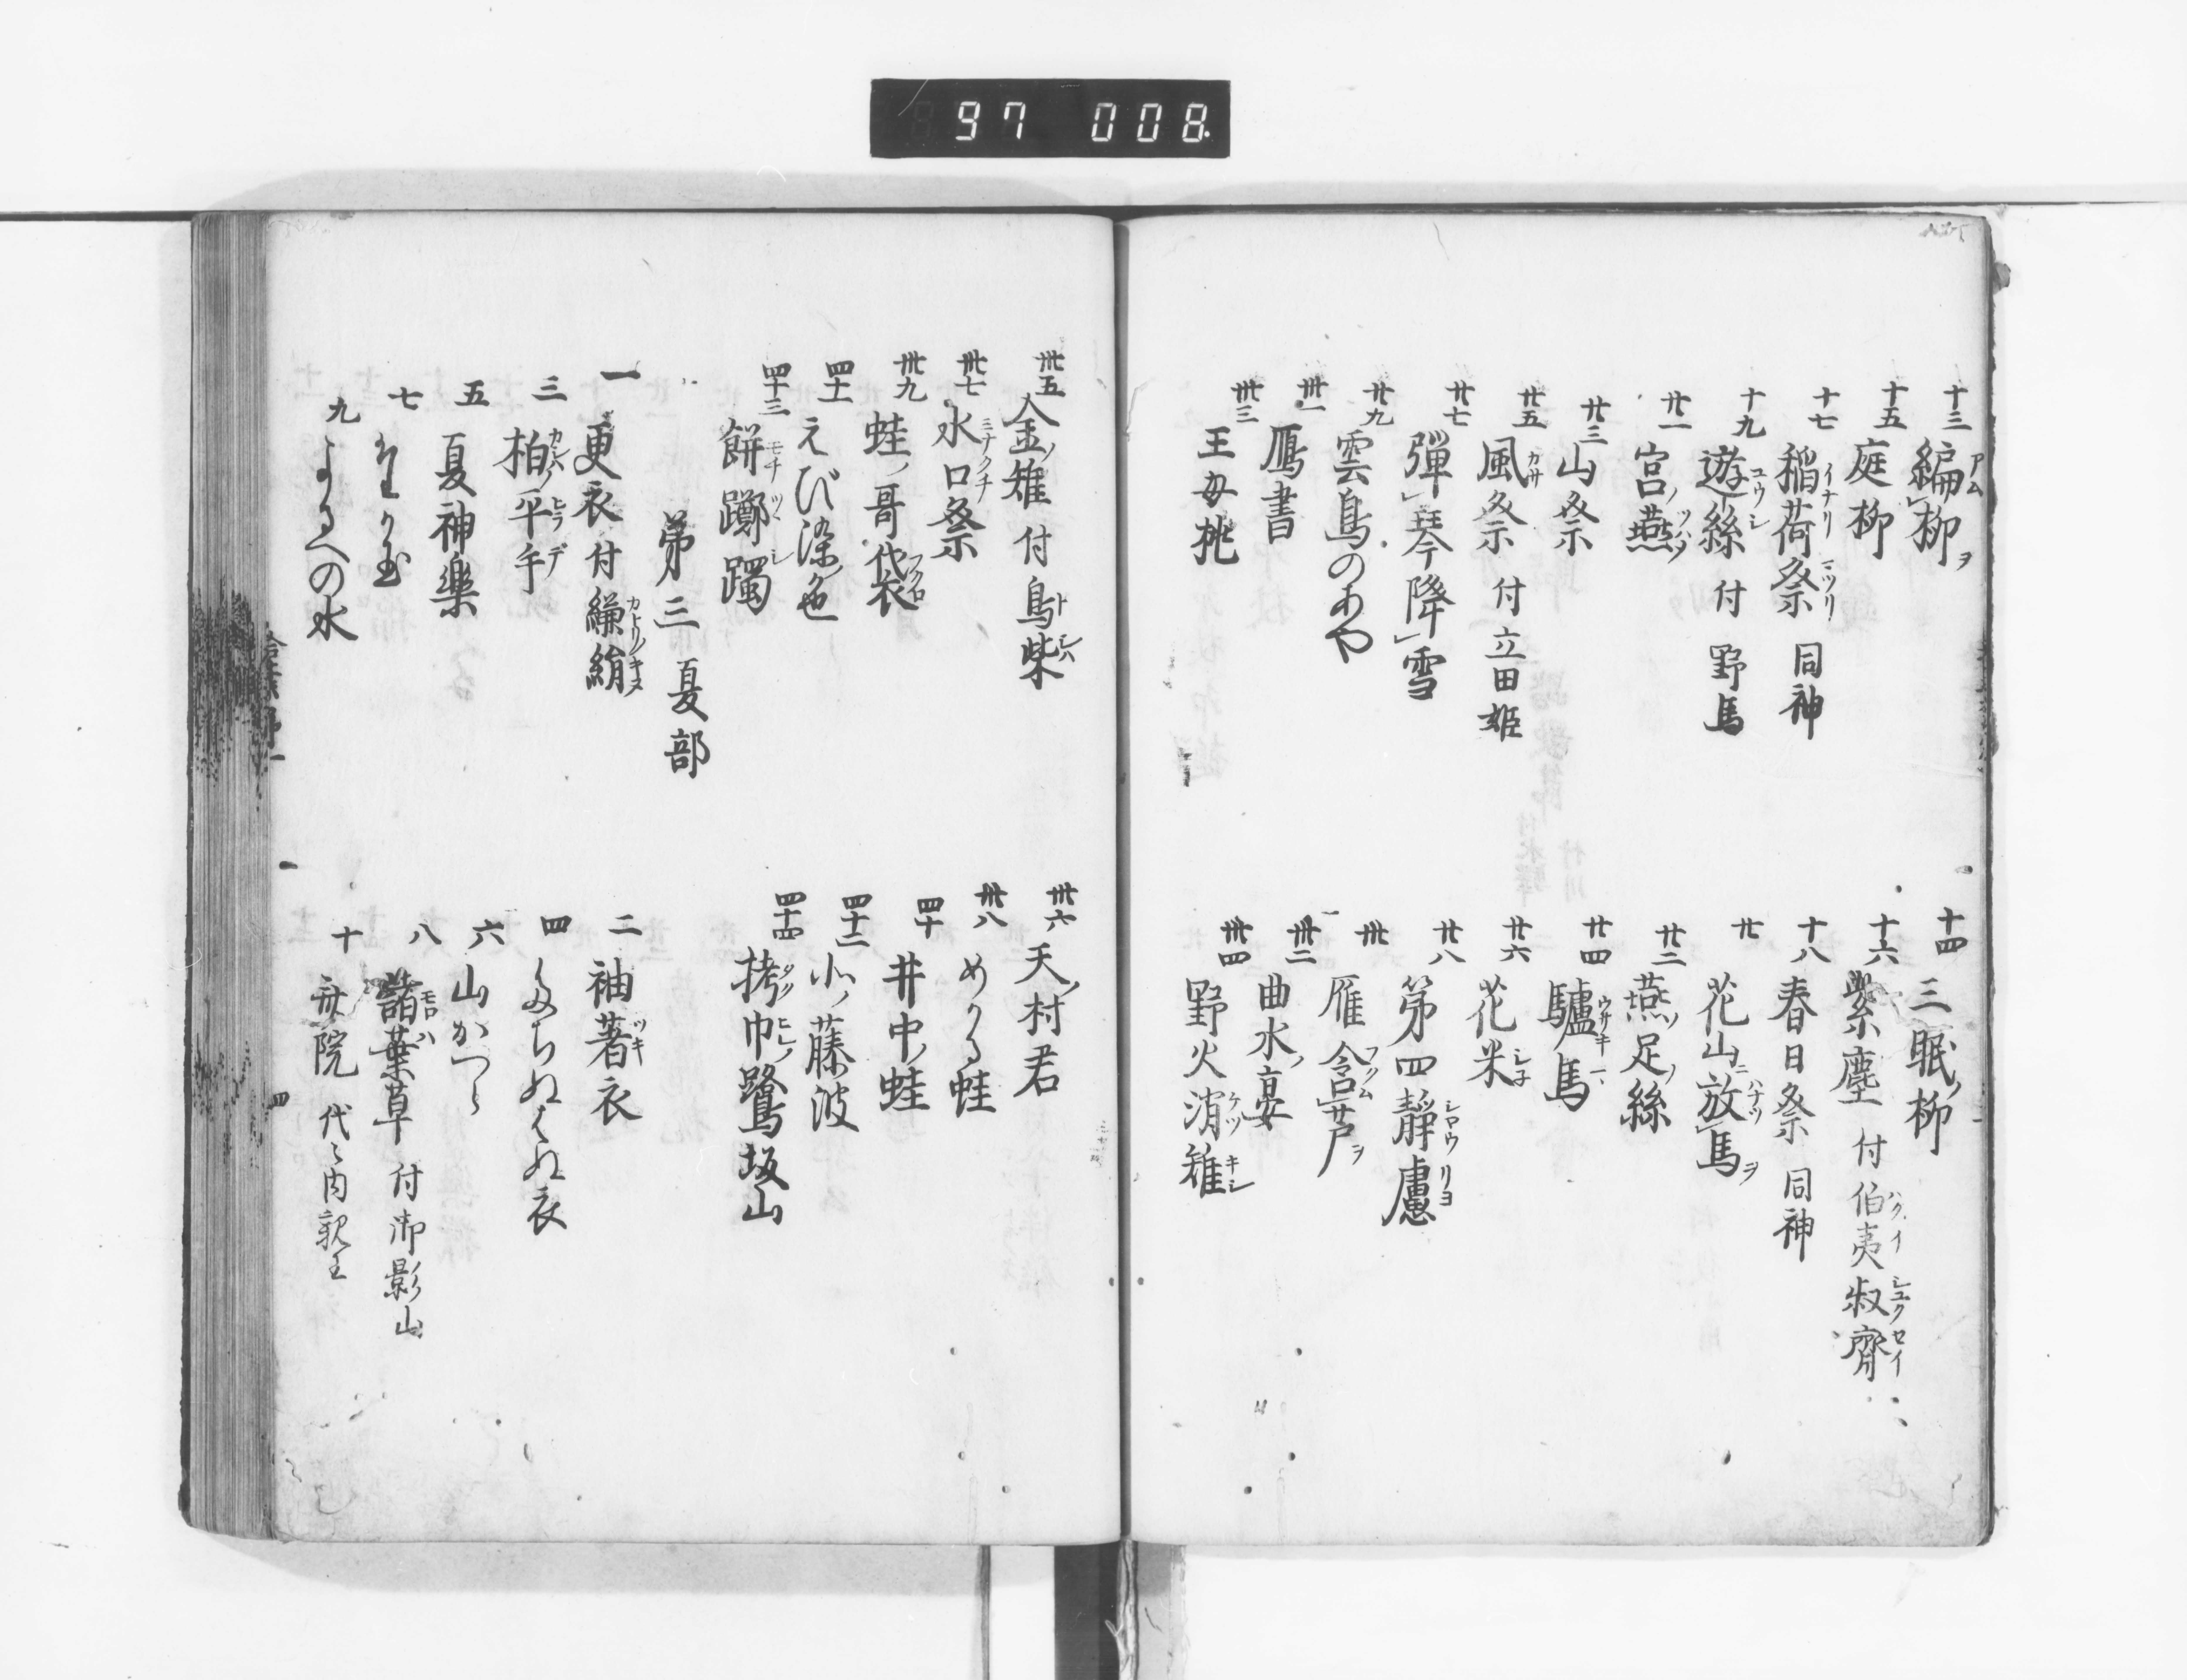 97 008
十三 編柳ヲ
十四 三眠ノ柳
十五 庭柳
十六 紫塵 付 伯夷叔齊
十七 稲荷祭 同神
十八 春日祭 同神
十九 遊絲 付 野馬
廿 花山ニ放馬ヲ
廿一 宮ノ燕
廿二 燕ノ足ノ絲
廿三 山祭
廿四 驢馬
廿五 風祭 付 立田姫
廿六 花米
廿七 弾琴降雪
廿八 第四靜慮
廿九 雲鳥のあや
卅 雁含芦ヲ
卅一 鴈書
卅二 曲水ノ宴
卅三 王母桃
卅四 野火消雉
卅五 金ノ雉 付 鳥柴
卅六 天ノ村君
卅七 水口祭
卅八 めかる蛙
卅九 蛙ノ哥袋
四十 井中ノ蛙
四十一 えび染色
四十二 小ノ藤波
四十三 餅躑躅
四十四 栲巾ノ鷺坂山
第三 夏部
一 更衣 付 縑絹
二 袖著衣
三 柏ノ平手
四 たちぬはぬ衣
五 夏神樂
六 山かつら
七
八 諸葉草 付 御影山
九 よるへの水
十 斎院 代々内親王
四